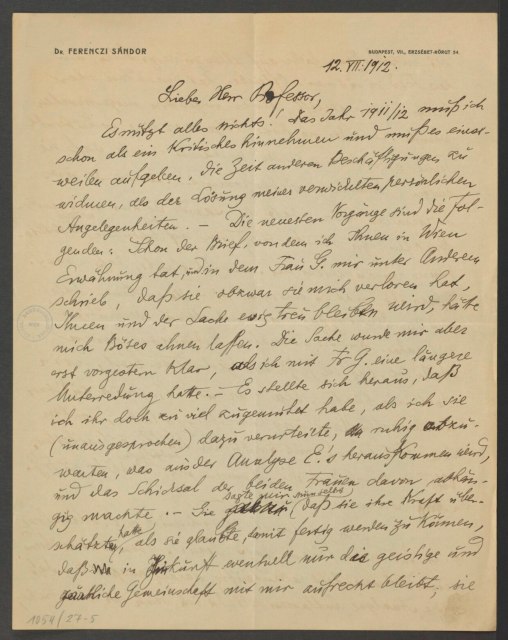 Dr. FERENCZI SÁNDOR
BUDAPEST, VII., ERZSÉBET-KÖRÚT 54.
12. VII. 1912.
Lieber Herr Professor,
Es nützt alles nichts! Das Jahr 1911/12 muß ich
schon als ein kritisches hinnehmen und muß es einst-
weilen aufgeben, die Zeit anderen Beschäftigungen zu
widmen, als der Lösung meiner verwickelten persönlichen
Angelegenheiten. — Die neuesten Vorgänge sind die fol-
genden: Schon der Brief, von dem ich Ihnen in Wien
Erwähnung tat, und in dem Frau G. mir unter Anderem
schrieb, daß sie obzwar sie mich verloren hat,
Ihnen und der Sache ewig treu bleiben wird, hätte
mich Böses ahnen lassen. Die Sache wurde mir aber
erst vorgestern klar, als ich mit Fr G. eine längere
Unterredung hatte. — Es stellte sich heraus, daß
ich ihr doch zu viel zugemutet habe, als ich sie
(unausgesprochen) dazu verurteilte, ruhig abzu-
warten, was aus der Analyse E's herauskommen wird,
und das Schicksal der beiden Frauen davon abhän-
gig machte. — Sie sagte mir nun, daß sie ihre Kraft über-
schätzt hatte, als sie glaubte, damit fertig werden zu können,
daß in Zukunft eventuell nur die geistige und
Gemeinschaft mit mir aufrecht bleibt; sie
1054/27-5